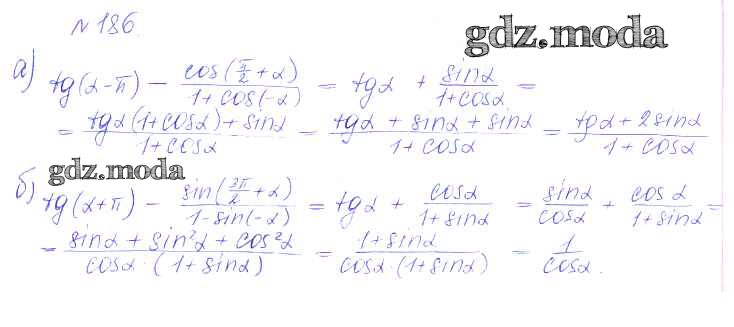 № 186.
gdz.moda
а) tg(α-π) - cos(π/2+α)/(1+cos(-α)) = tgα + sinα/(1+cosα) =
= (tgα(1+cosα)+sinα)/(1+cosα) = (tgα + sinα + sinα)/(1+cosα) = (tgα+2sinα)/(1+cosα)
gdz.moda
б) tg(α+π) - sin(3π/2+α)/(1-sin(-α)) = tgα + cosα/(1+sinα) = sinα/cosα + cosα/(1+sinα) =
= (sinα + sin²α + cos²α)/(cosα·(1+sinα)) = (1+sinα)/(cosα·(1+sinα)) = 1/cosα.